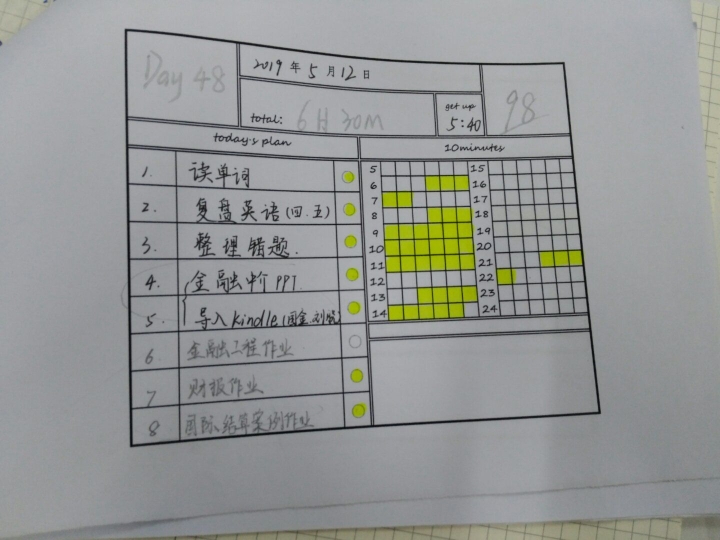 Day 48
2019 年 5 月 12 日
total: 6H 30M
get up
5:40
98
today's plan
10minutes
1. 读单词
2. 复盘英语(四.五)
3. 整理错题.
4. 金融中介 PPT
5. 导入kindle(国金.刘
6 金融工程作业
7 财报作业
8 国际结算案例作业
5 15
6 16
7 17
8 18
9 19
10 20
11 21
12 22
13 23
14 24